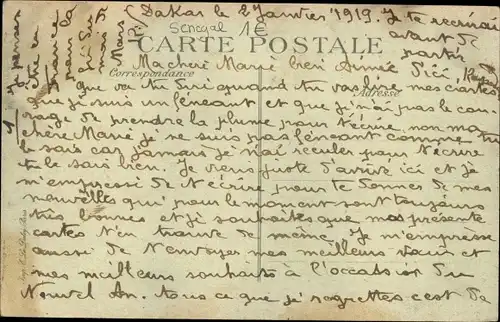 Dakar le 2 Janvier 1919. Je te récrirai
Sénégal 1€
avant de
partir
d'ici,
CARTE POSTALE
Correspondance
Adresse
Je pense
être en
France
pour la
fin du
mois
Mars
Ma chère Marie bien Aimée
que va tu dire quand tu vas lire mes cartes
que je suis un fénéant et que j'ai pas le cou
rage de prendre la plume pour t'écrire, non ma
chère Marie je ne suis pas fénéant comme tu
le sais car jamais j'ai reculer pour t'écrire
tu le sais bien. Je viens juste d'arrivé ici et je
m'empresse de t'écrire pour te donner de mes
nouvelles qui pour le moment sont toujours
très bonnes et je souhaites que mes présente
cartes t'en trouve de même. Je m'empresse
aussi de t'envoyer mes meilleurs vœux et
mes meilleurs souhaits à l'occasion du
Nouvel An. tous ce que je regrettes c'est de